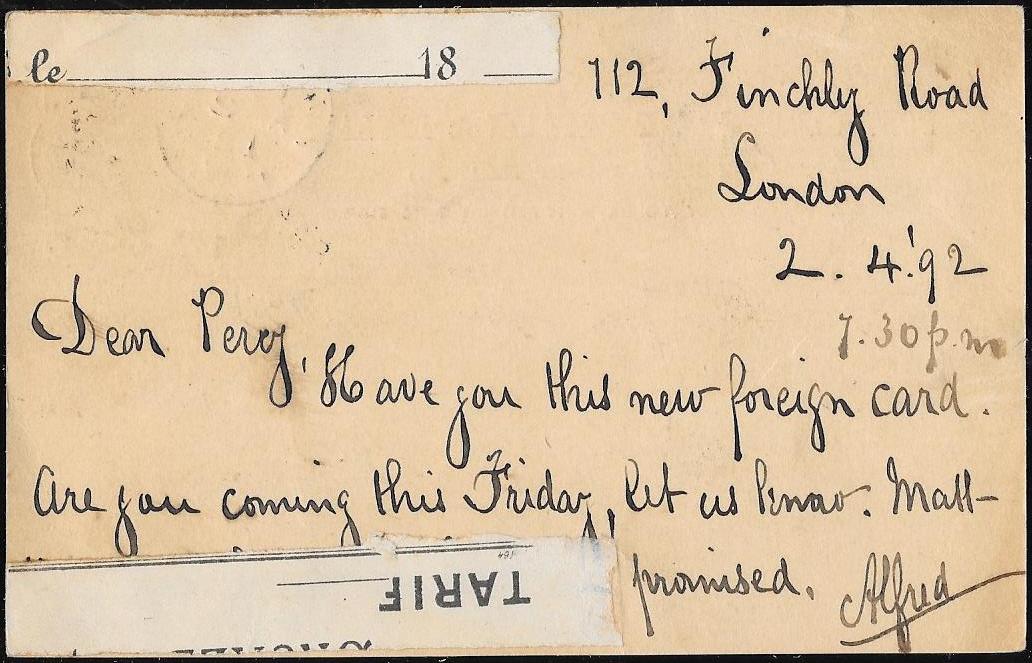 le 18
112, Finchly Road
London
2. 4.'92
7.30 p.m
Dear Percy,
Have you this new foreign card.
Are you coming this Friday, let us know. Matt-
promised. Alfred
TARIF